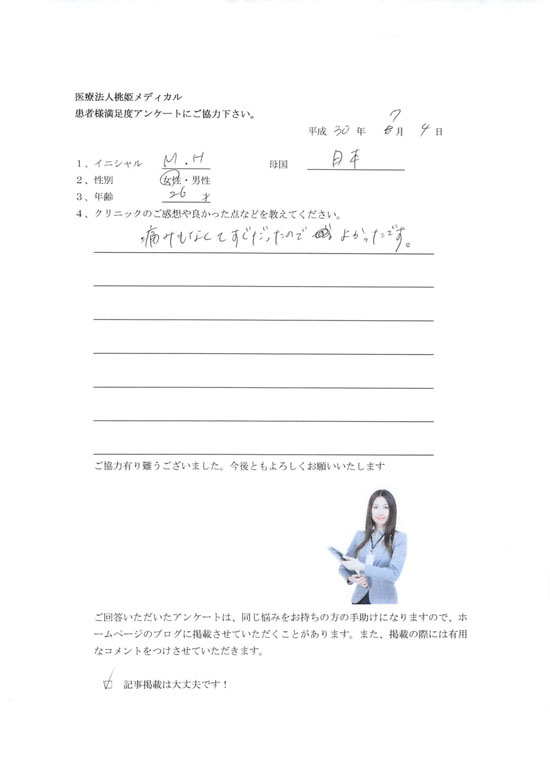 医療法人桃姫メディカル
患者様満足度アンケートにご協力下さい。
平成 30 年 7 月 4 日
1、イニシャル M・H 母国 日本
2、性別 女性・男性
3、年齢 26 才
4、クリニックのご感想や良かった点などを教えてください。
痛みもなくてすぐだったので よかったです。
ご協力有り難うございました。今後ともよろしくお願いいたします
ご回答いただいたアンケートは、同じ悩みをお持ちの方の手助けになりますので、ホ
ームページのブログに掲載させていただくことがあります。また、掲載の際には有用
なコメントをつけさせていただきます。
☑ 記事掲載は大丈夫です！